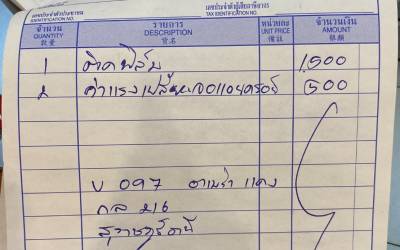 เลขประจำตัวประชาชน
IDENTIFICATION NO.
เลขประจำตัวผู้เสียภาษีอากร
TAX IDENTIFICATION NO.
จำนวน QUANTITY 數量 รายการ DESCRIPTION 貨名 หน่วยละ UNIT PRICE 價 จำนวนเงิน AMOUNT 銀額
1 ติดฟิล์ม 1,500
2 ค่าแรงเปลี่ยน 500
097 แดง
กล 216
สุราษฎร์ธานี